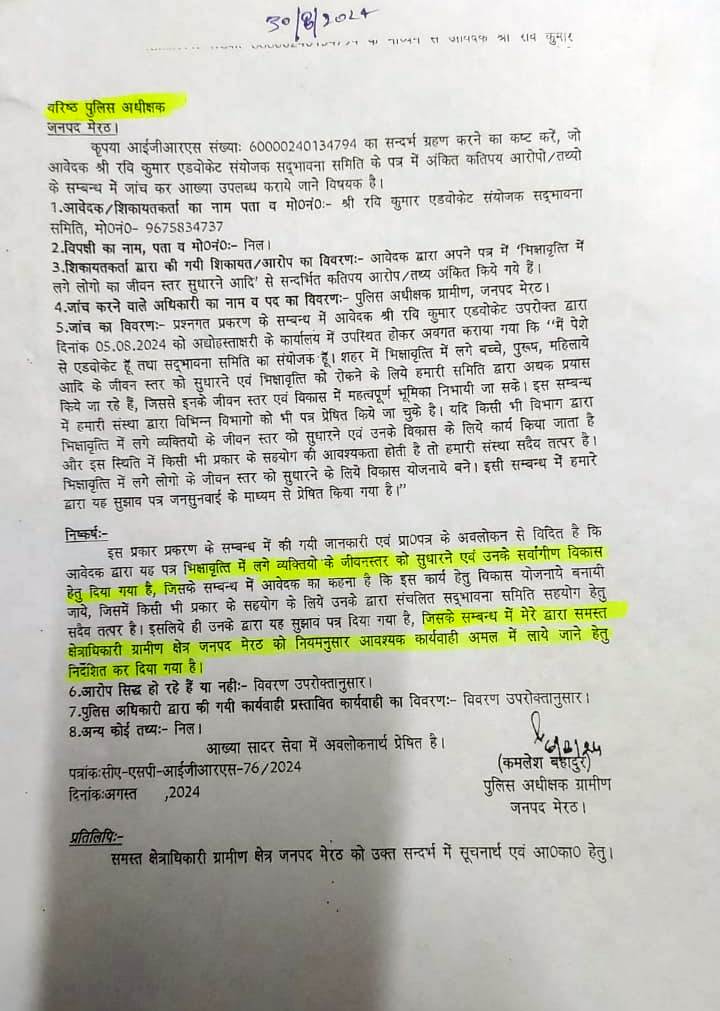 30/8/2024
श्री रवि कुमार
वरिष्ठ पुलिस अधीक्षक
जनपद मेरठ।
कृपया आईजीआरएस संख्याः 60000240134794 का सन्दर्भ ग्रहण करने का कष्ट करें, जो
आवेदक श्री रवि कुमार एडवोकेट संयोजक सद्भावना समिति के पत्र में अंकित कतिपय आरोपो/तथ्यो
के सम्बन्ध में जांच कर आख्या उपलब्ध कराये जाने विषयक है।
1.आवेदक/शिकायतकर्ता का नाम पता व मो0नं0:- श्री रवि कुमार एडवोकेट संयोजक सद्भावना
समिति, मो0नं0- 9675834737
2.विपक्षी का नाम, पता व मो0नं0:- निल।
3.शिकायतकर्ता द्वारा की गयी शिकायत/आरोप का विवरण:- आवेदक द्वारा अपने पत्र में 'भिक्षावृत्ति में
लगे लोगो का जीवन स्तर सुधारने आदि' से सन्दर्भित कतिपय आरोप/तथ्य अंकित किये गये हैं।
4.जांच करने वाले अधिकारी का नाम व पद का विवरण:- पुलिस अधीक्षक ग्रामीण, जनपद मेरठ।
5.जांच का विवरण:- प्रश्नगत प्रकरण के सम्बन्ध में आवेदक श्री रवि कुमार एडवोकेट उपरोक्त द्वारा
दिनांक 05.08.2024 को अधोहस्ताक्षरी के कार्यालय में उपस्थित होकर अवगत कराया गया कि "मैं पेशे
से एडवोकेट हूँ तथा सद्भावना समिति का संयोजक हूँ। शहर में भिक्षावृत्ति में लगे बच्चे, पुरूष, महिलाये
आदि के जीवन स्तर को सुधारने एवं भिक्षावृत्ति को रोकने के लिये हमारी समिति द्वारा अथक प्रयास
किये जा रहे हैं, जिससे इनके जीवन स्तर एवं विकास में महत्वपूर्ण भूमिका निभायी जा सके। इस सम्बन्ध
में हमारी संस्था द्वारा विभिन्न विभागो को भी पत्र प्रेषित किये जा चुके है। यदि किसी भी विभाग द्वारा
भिक्षावृत्ति में लगे व्यक्तियो के जीवन स्तर को सुधारने एवं उनके विकास के लिये कार्य किया जाता है
और इस स्थिति में किसी भी प्रकार के सहयोग की आवश्यकता होती है तो हमारी संस्था सदैव तत्पर है।
भिक्षावृत्ति में लगे लोगो के जीवन स्तर को सुधारने के लिये विकास योजनाये बने। इसी सम्बन्ध में हमारे
द्वारा यह सुझाव पत्र जनसुनवाई के माध्यम से प्रेषित किया गया है।"
निष्कर्षः-
इस प्रकार प्रकरण के सम्बन्ध में की गयी जानकारी एवं प्रा0पत्र के अवलोकन से विदित है कि
आवेदक द्वारा यह पत्र भिक्षावृत्ति में लगे व्यक्तियो के जीवनस्तर को सुधारने एवं उनके सर्वागीण विकास
हेतु दिया गया है, जिसके सम्बन्ध में आवेदक का कहना है कि इस कार्य हेतु विकास योजनाये बनायी
जाये, जिसमें किसी भी प्रकार के सहयोग के लिये उनके द्वारा संचलित सद्भावना समिति सहयोग हेतु
सदैव तत्पर है। इसलिये ही उनके द्वारा यह सुझाव पत्र दिया गया है, जिसके सम्बन्ध में मेरे द्वारा समस्त
क्षेत्राधिकारी ग्रामीण क्षेत्र जनपद मेरठ को नियमनुसार आवश्यक कार्यवाही अमल में लाये जाने हेतु
निर्देशित कर दिया गया है।
6.आरोप सिद्ध हो रहे हैं या नही:- विवरण उपरोक्तानुसार।
7.पुलिस अधिकारी द्वारा की गयी कार्यवाही प्रस्तावित कार्यवाही का विवरण:- विवरण उपरोक्तानुसार।
8.अन्य कोई तथ्य:- निल।
आख्या सादर सेवा में अवलोकनार्थ प्रेषित है।
पत्रांकःसीए-एसपी-आईजीआरएस-76/2024
दिनांकःअगस्त ,2024
(कमलेश बहादुर)
पुलिस अधीक्षक ग्रामीण
जनपद मेरठ।
प्रतिलिपिः-
समस्त क्षेत्राधिकारी ग्रामीण क्षेत्र जनपद मेरठ को उक्त सन्दर्भ में सूचनार्थ एवं आ0का0 हेतु।